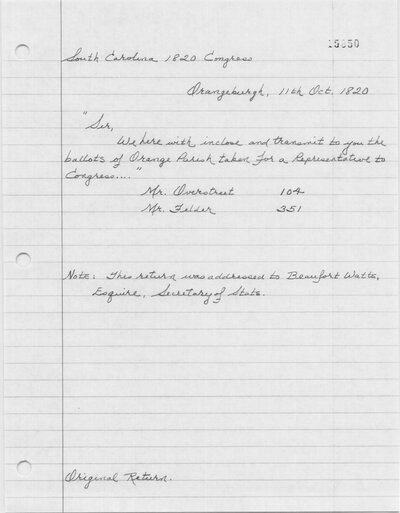 15650
South Carolina 1820 Congress
Orangeburgh, 11th Oct. 1820
"Sir,
We here with inclose and transmit to you the
ballots of Orange Parish taken for a Representative to
Congress...."
Mr. Overstreet 104
Mr. Felder 351
Note: This return was addressed to Beaufort Watts,
Esquire, Secretary of State.
Original Return.